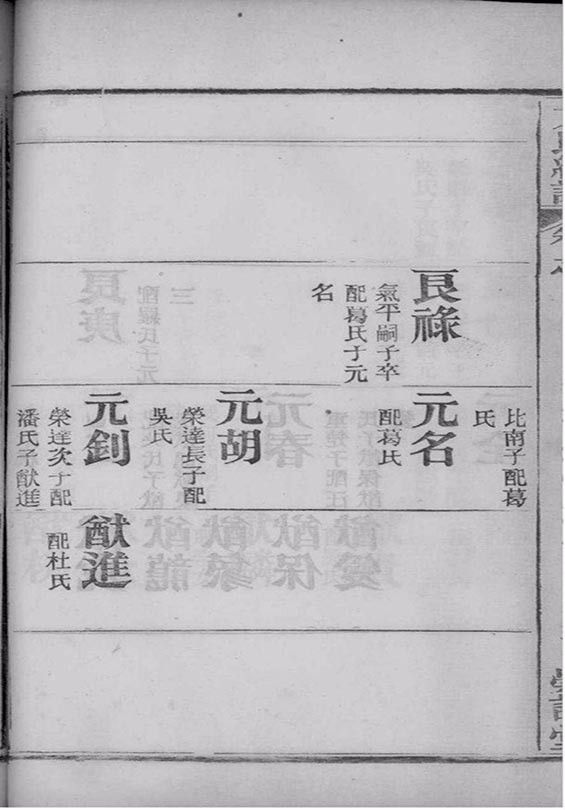 良祿
氣平嗣子卒
配葛氏子元
名
比南子配葛
氏
元名
配葛氏
元胡
榮達長子配
吳氏
元釗
榮達次子配
潘氏子猷進
猷進
配杜氏